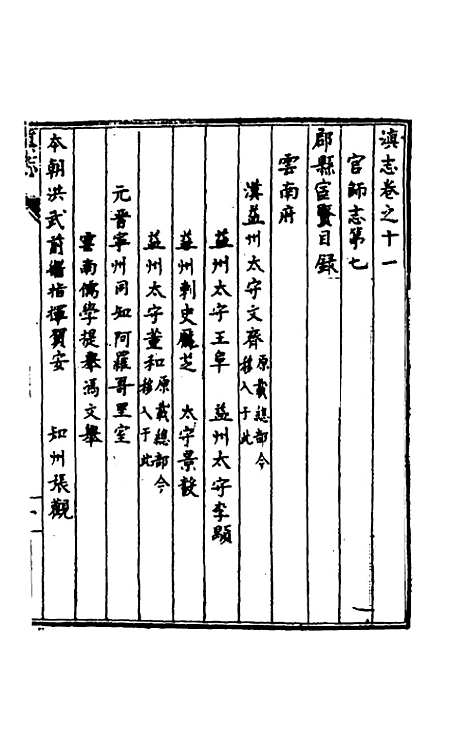 滇志卷之十一
官師志第七
郡縣宦賢目錄
雲南府
漢益州太守文齊原載總部今移入于此
益州太守王阜　益州太守李顒
益州刺史龐芝　太守景毅
益州太守董和原載總部今移入于此
元晋寧州同知阿羅哥里室
雲南儒學提舉馮文舉
本朝洪武前衛指揮賀安　知州張觀